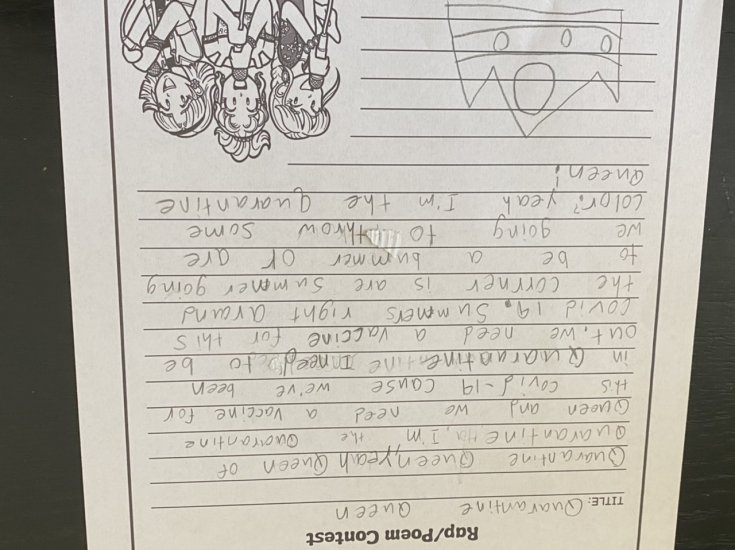 Rap/Poem Contest
TITLE: Quarantine Queen
Quarantine Queen, yeah Queen of
Quarantine ha, I'm the Quarantine
Queen and we need a vaccine for
this covid-19 cause we've been
in Quarantine I need to be
out, we need a vaccine for this
covid 19. Summers right arand
the corrner is are summer going
to be a bummer or are
we going to throw some
color? yeah I'm the quarantine
Queen!